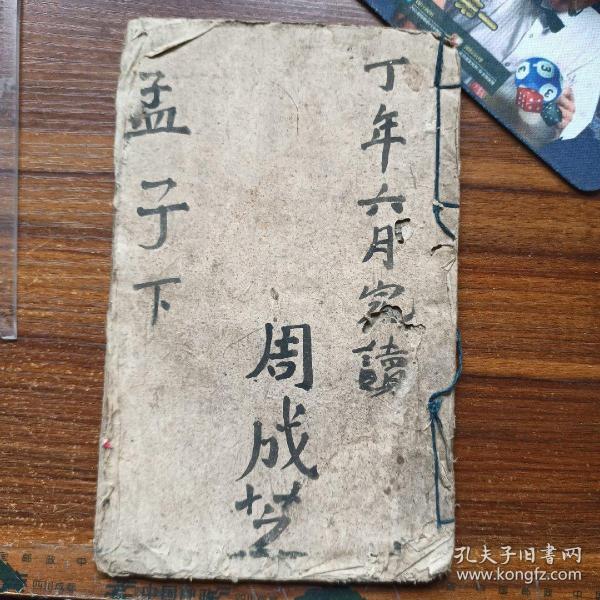 丁年六月
讀
周成芝
孟子下
孔夫子旧书网
www.kongfz.com